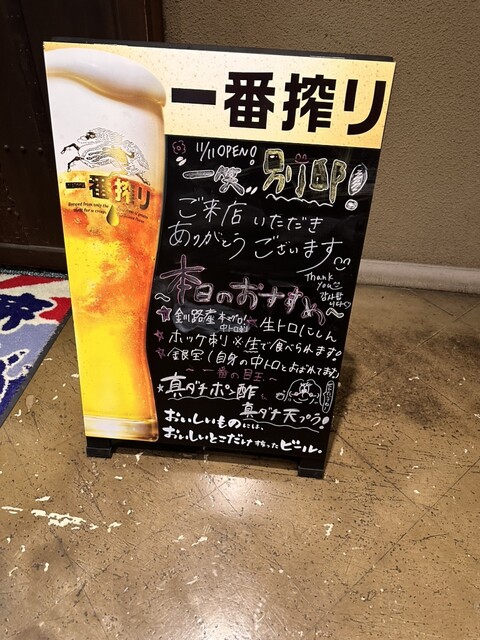 一番搾り
一番搾り
11/11 OPEN!
一笑 別邸
ご来店いただき
ありがとうございます
Thank
you
本日のおすすめ
釧路産 本マグロ 中トロ刺
生トロにしん
ホッケ刺 ※生で食べられます。
銀宝(身の中トロとよばれてます)
〜一番の目玉〜
真ダチポン酢
真ダチ天プラ!
おいしいものには、
おいしいとこだけ搾ったビール。